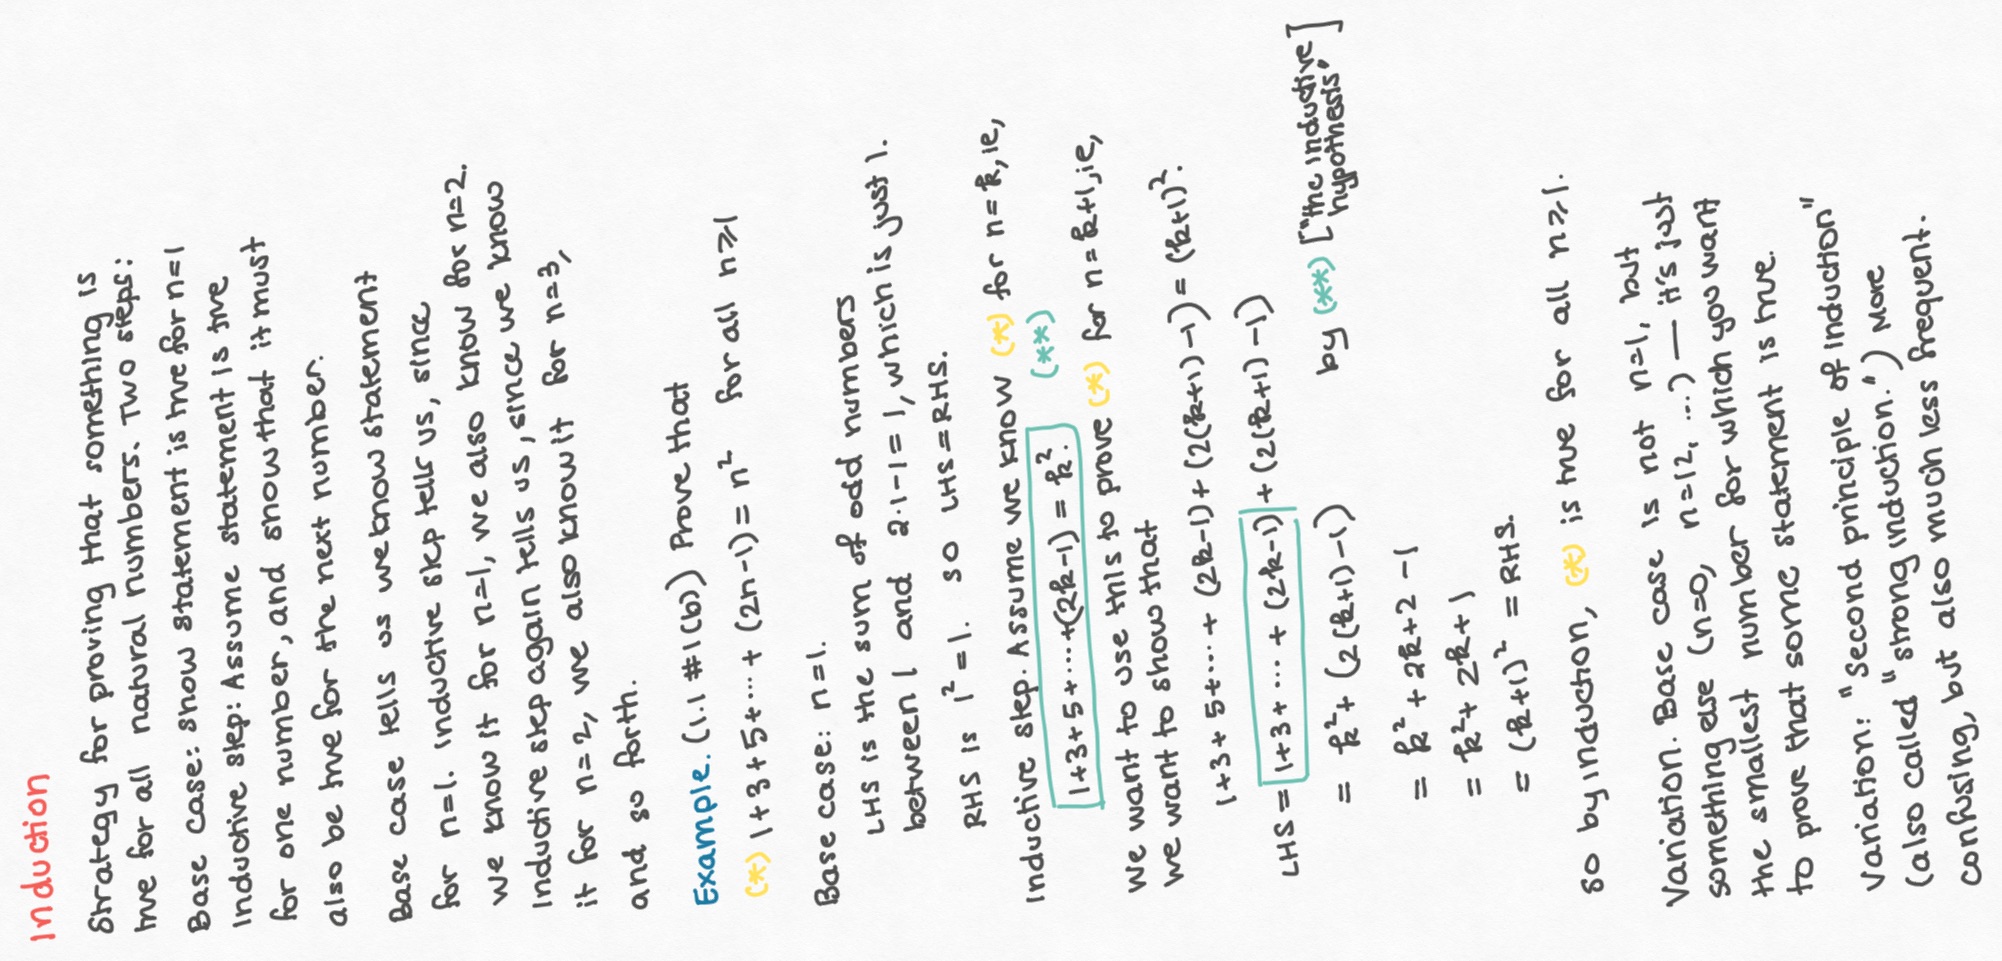 Induction
Strategy for proving that something is
true for all natural numbers. Two steps:
Base case: Show statement is true for n=1
Inductive step: Assume statement is true
for one number, and show that it must
also be true for the next number.
Base case tells us we know statement
for n=1. Inductive step tells us, since
we know it for n=1, we also know for n=2.
Inductive step again tells us, since we know
it for n=2, we also know it for n=3,
and so forth.
Example. (1.1 #1(b)) Prove that
(*) 1+3+5+⋯+(2n-1)=n² for all n≥1
Base case: n=1.
LHS is the sum of odd numbers
between 1 and 2·1-1=1, which is just 1.
RHS is 1²=1. So LHS=RHS.
Inductive step. Assume we know (*) for n=k, ie,
1+3+5+⋯+(2k-1)=k². (**)
We want to use this to prove (*) for n=k+1, ie,
we want to show that
1+3+5+⋯+(2k-1)+(2(k+1)-1)=(k+1)².
LHS=1+3+⋯+(2k-1)+(2(k+1)-1)
=k²+(2(k+1)-1) by (**) ["the inductive hypothesis"]
=k²+2k+2-1
=k²+2k+1
=(k+1)²=RHS.
So by induction, (*) is true for all n≥1.
Variation. Base case is not n=1, but
something else (n=0, n=12, ...) — it's just
the smallest number for which you want
to prove that some statement is true.
Variation: "Second principle of induction"
(also called "strong induction.") More
confusing, but also much less frequent.